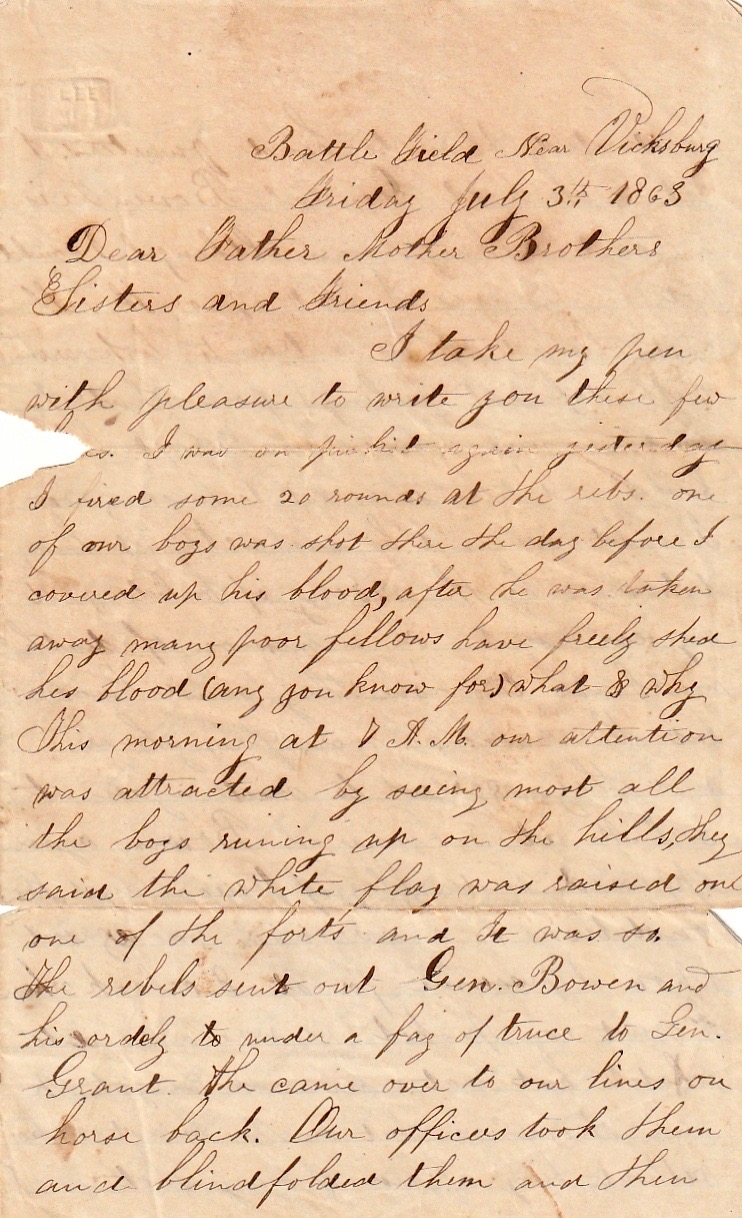 Battle Field Near Vicksburg
Friday July 3th 1863
Dear Father Mother Brothers
& Sisters and Friends
I take my pen
with pleasure to write you these few
I was on picket again yesterday
I fired some 20 rounds at the rebs. one
of our boys was shot there the day before I
covered up his blood, after he was taken
away many poor fellows have freely shed
his blood (any you know for) what & why
This morning at 7 A.M. our attention
was attracted by seeing most all
the boys runing up on the hills, they
said the white flag was raised on
one of the forts and It was so.
The rebels sent out Gen. Bowen and
his ordely to under a fag of truce to Gen.
Grant. The came over to our lines on
horse back. Our officers took them
and blindfolded them and then